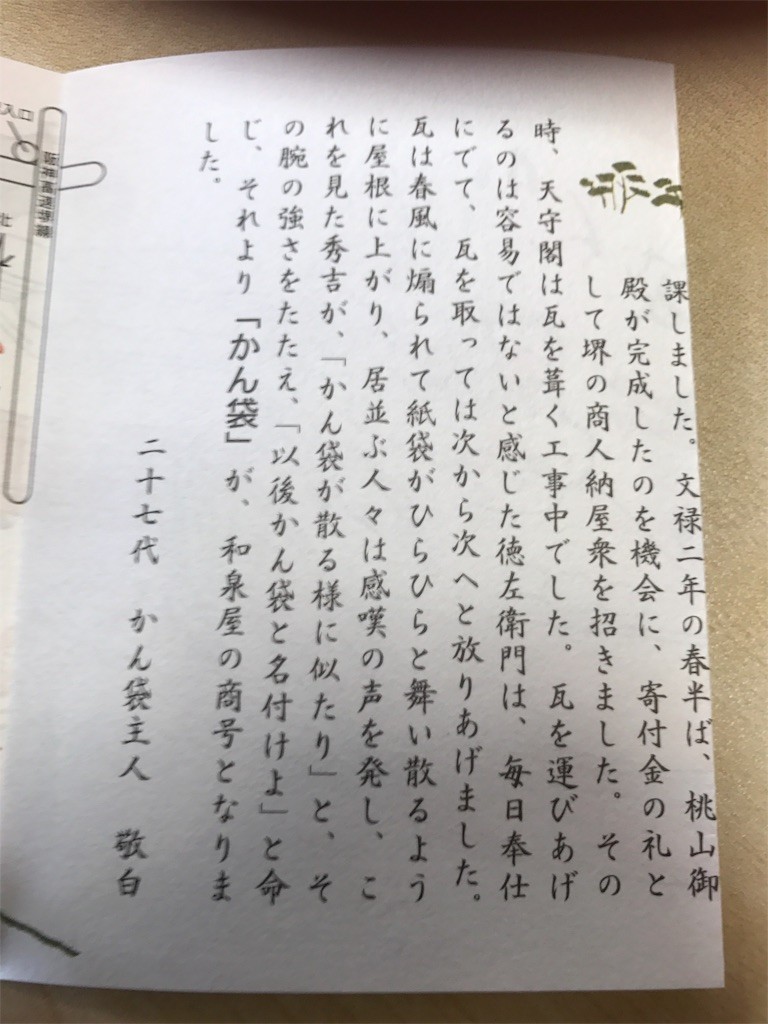 課しました。文禄二年の春半ば、桃山御
殿が完成したのを機会に、寄付金の礼と
して堺の商人納屋衆を招きました。その
時、天守閣は瓦を葺く工事中でした。瓦を運びあげ
るのは容易ではないと感じた徳左衛門は、毎日奉仕
にでて、瓦を取っては次から次へと放りあげました。
瓦は春風に煽られて紙袋がひらひらと舞い散るよう
に屋根に上がり、居並ぶ人々は感嘆の声を発し、こ
れを見た秀吉が、「かん袋が散る様に似たり」と、そ
の腕の強さをたたえ、「以後かん袋と名付けよ」と命
じ、それより「かん袋」が、和泉屋の商号となりま
した。
二十七代 かん袋主人 敬白
入口
阪神高速堺線
北